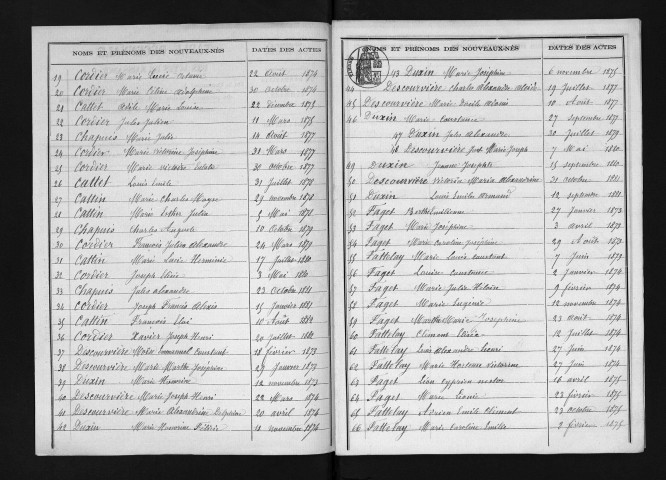 NOMS ET PRÉNOMS DES NOUVEAUX-NÉS DATES DES ACTES
19 Cordier Marie 22 Août 1874
20 Cordier Marie Céline 30 octobre 1874
21 Callet Adèle Marie Louise 22 Décembre 1875
22 Cordier Jules Julien 11 Mars 1875
23 Chapuis Marie Julie 14 Août 1877
24 Cordier Marie Victorine Joséphine 31 Mars 1877
25 Cordier Marie 30 octobre 1877
26 Callet Louis Emile 31 Juillet 1878
27 Cattin Marie Charles 29 novembre 1878
28 Cattin Marie Julia 5 Mai 1878
29 Chapuis Charles Auguste 10 Octobre 1879
30 Cordier François Julien Alexandre 24 Mars 1879
31 Cattin Marie Lucie Herminie 17 Juillet 1880
32 Cordier Joseph 3 Mai 1880
33 Chapuis Jules Alexandre 23 Octobre 1881
34 Cordier Joseph Francis Alexis 15 Janvier 1881
35 Cattin François Eloi 10 Août 1882
36 Cordier Xavier Joseph Henri 20 Juillet 1882
37 Descourvière Emmanuel Constant 18 février 1873
38 Descourvière Marie Marthe Joséphine 27 Janvier 1873
39 Duxin Marie 12 novembre 1873
40 Descourvière Marie Joseph Henri 22 Mars 1874
41 Descourvière Marie Alexandrine 20 avril 1874
42 Duxin Marie Honorine 11 novembre 1874
NOMS ET PRÉNOMS DES NOUVEAUX-NÉS DATES DES ACTES
43 Duxin Marie Joséphine 6 novembre 1875
44 Descourvière Charles Alexandre 19 Juillet 1877
45 Descourvière Marie 10 Août 1877
46 Duxin Marie Constance 27 septembre 1877
47 Duxin Jules Alexandre 30 Juillet 1879
48 Descourvière Marie Joseph 7 Mai 1880
49 Duxin Jeanne 15 septembre 1880
50 Descourvière Victoria Maria Alexandrine 31 octobre 1881
51 Duxin Louis Emile Armand 12 septembre 1881
52 Faget 27 Janvier 1873
53 Faget Marie Joséphine 3 avril 1873
54 Faget Marie Caroline Joséphine 29 Août 1873
55 Fattelay Marie Louis Constant 7 Juin 1873
56 Faget Louise Constance 2 Janvier 1874
57 Faget Marie Julie 9 février 1874
58 Faget Marie Eugénie 12 novembre 1874
59 Faget Marthe Marie Joséphine 23 Août 1874
60 Fattelay Clément 12 Juillet 1874
61 Fattelay Louis Alexandre Henri 27 Juin 1874
62 Fattelay Marie Hortense Victorine 27 Juin 1874
63 Faget Léon Cyprien 16 avril 1875
64 Faget Marie Léonie 23 février 1875
65 Fattelay Adrien Emile Clément 23 octobre 1875
66 Fattelay Marie Caroline Emilie 2 février 1875